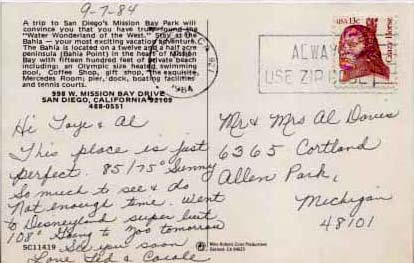 9-7-84
A trip to San Diego's Mission Bay Park will
convince you that you have truly found the
"Water Wonderland of the West." Stay at the
Bahia — your most exciting vacation adventure.
The Bahia is located on a twelve and a half acre
peninsula (Bahia Point) in the heart of Mission
Bay with fifteen hundred feet of private beach
including: an Olympic size heated swimming
pool, Coffee Shop, gift shop, the exquisite
Mercedes Room; pier, dock, boating facilities
and tennis courts.
998 W. MISSION BAY DRIVE
SAN DIEGO, CALIFORNIA 92109
488-0551
1984
ALWAYS
USE ZIP CODE
USA 13c
Crazy Horse
Hi Faye & Al
This place is just
perfect. 85/75° Sunny
So much to see & do
Not enough time. Went
to Disneyland super but
108° Going to Zoo tomorrow
See you soon
Love Ted & Carole
SC11419
Mr & Mrs Al Davis
6365 Cortland
Allen Park,
Michigan
48101